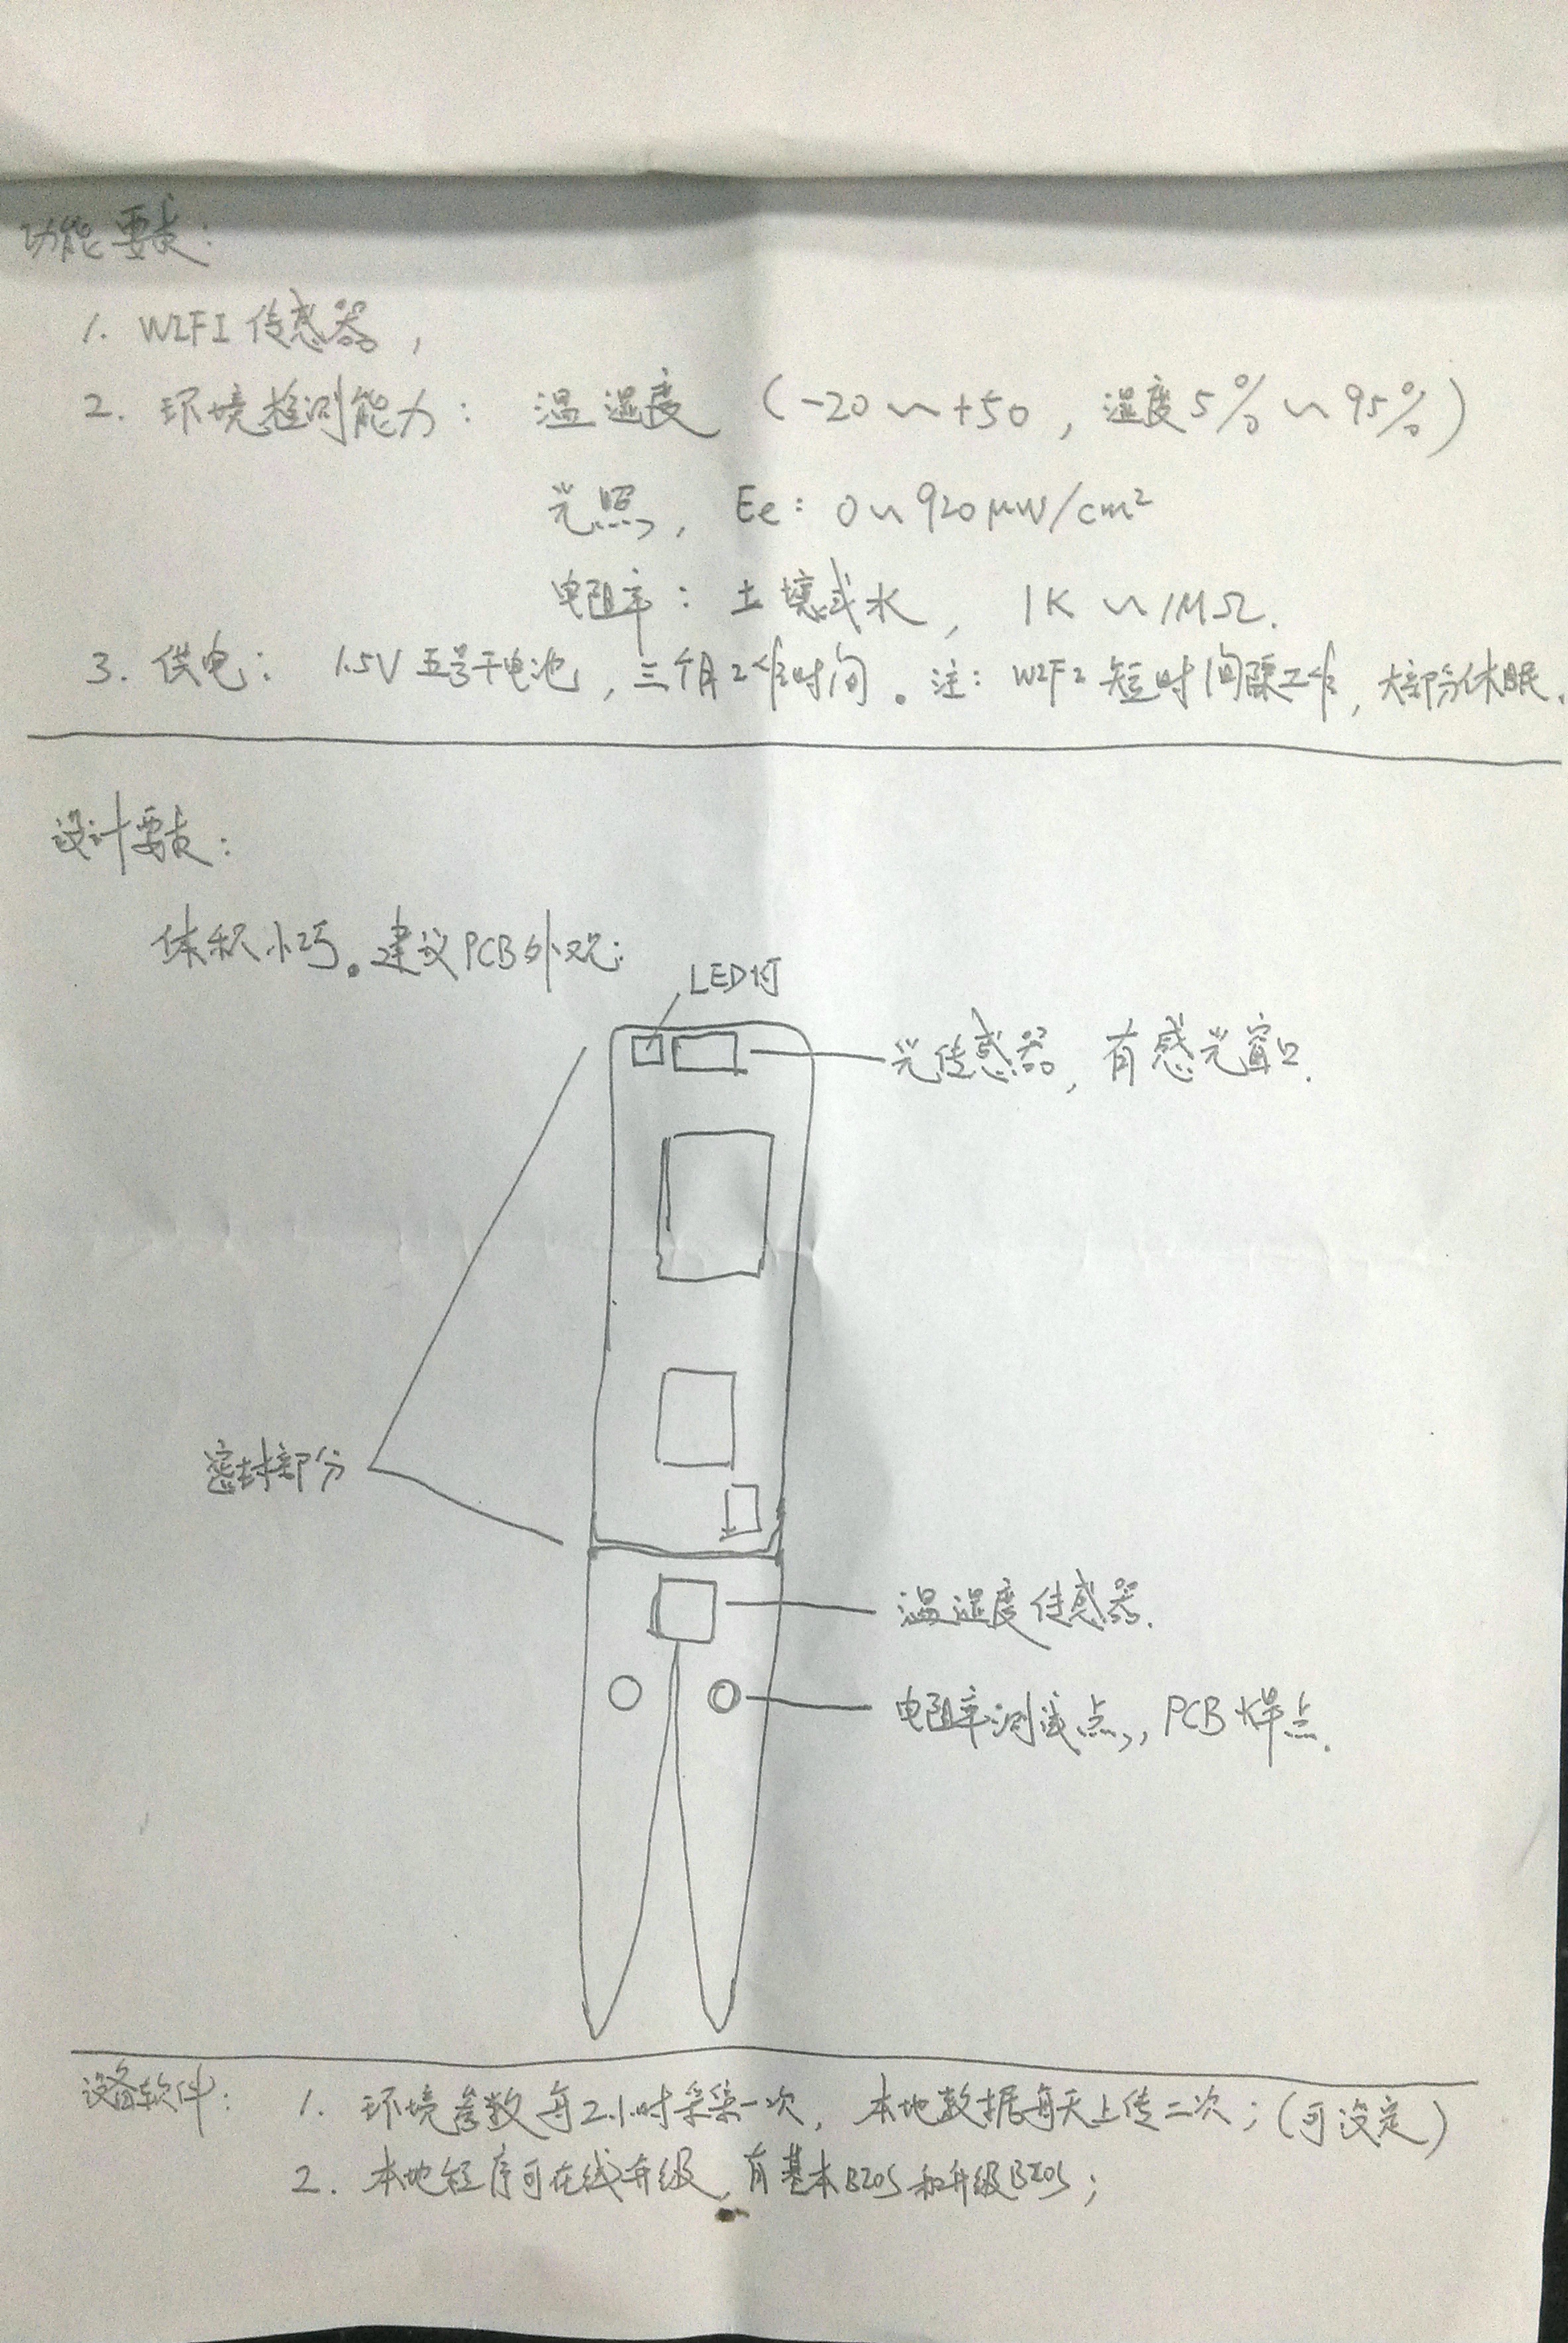 功能要点:
1. WIFI 传感器,
2. 环境检测能力: 温湿度 (-20~+50, 湿度5%~95%)
光照, Ee: 0~920μW/cm²
电阻率: 土壤或水, 1K~1MΩ.
3. 供电: 1.5V 五号干电池, 三个月工作时间。注: WIFI 短时间隔工作, 大部分休眠.
设计要点:
体积小巧。建议PCB外观:
LED灯
光传感器, 有感光窗口.
密封部分
温湿度传感器.
电阻率测试点, PCB焊点.
设备软件: 1. 环境参数每2小时采集一次, 本地数据每天上传二次; (可设定)
2. 本地程序可在线升级, 有基本BIOS和升级BIOS;